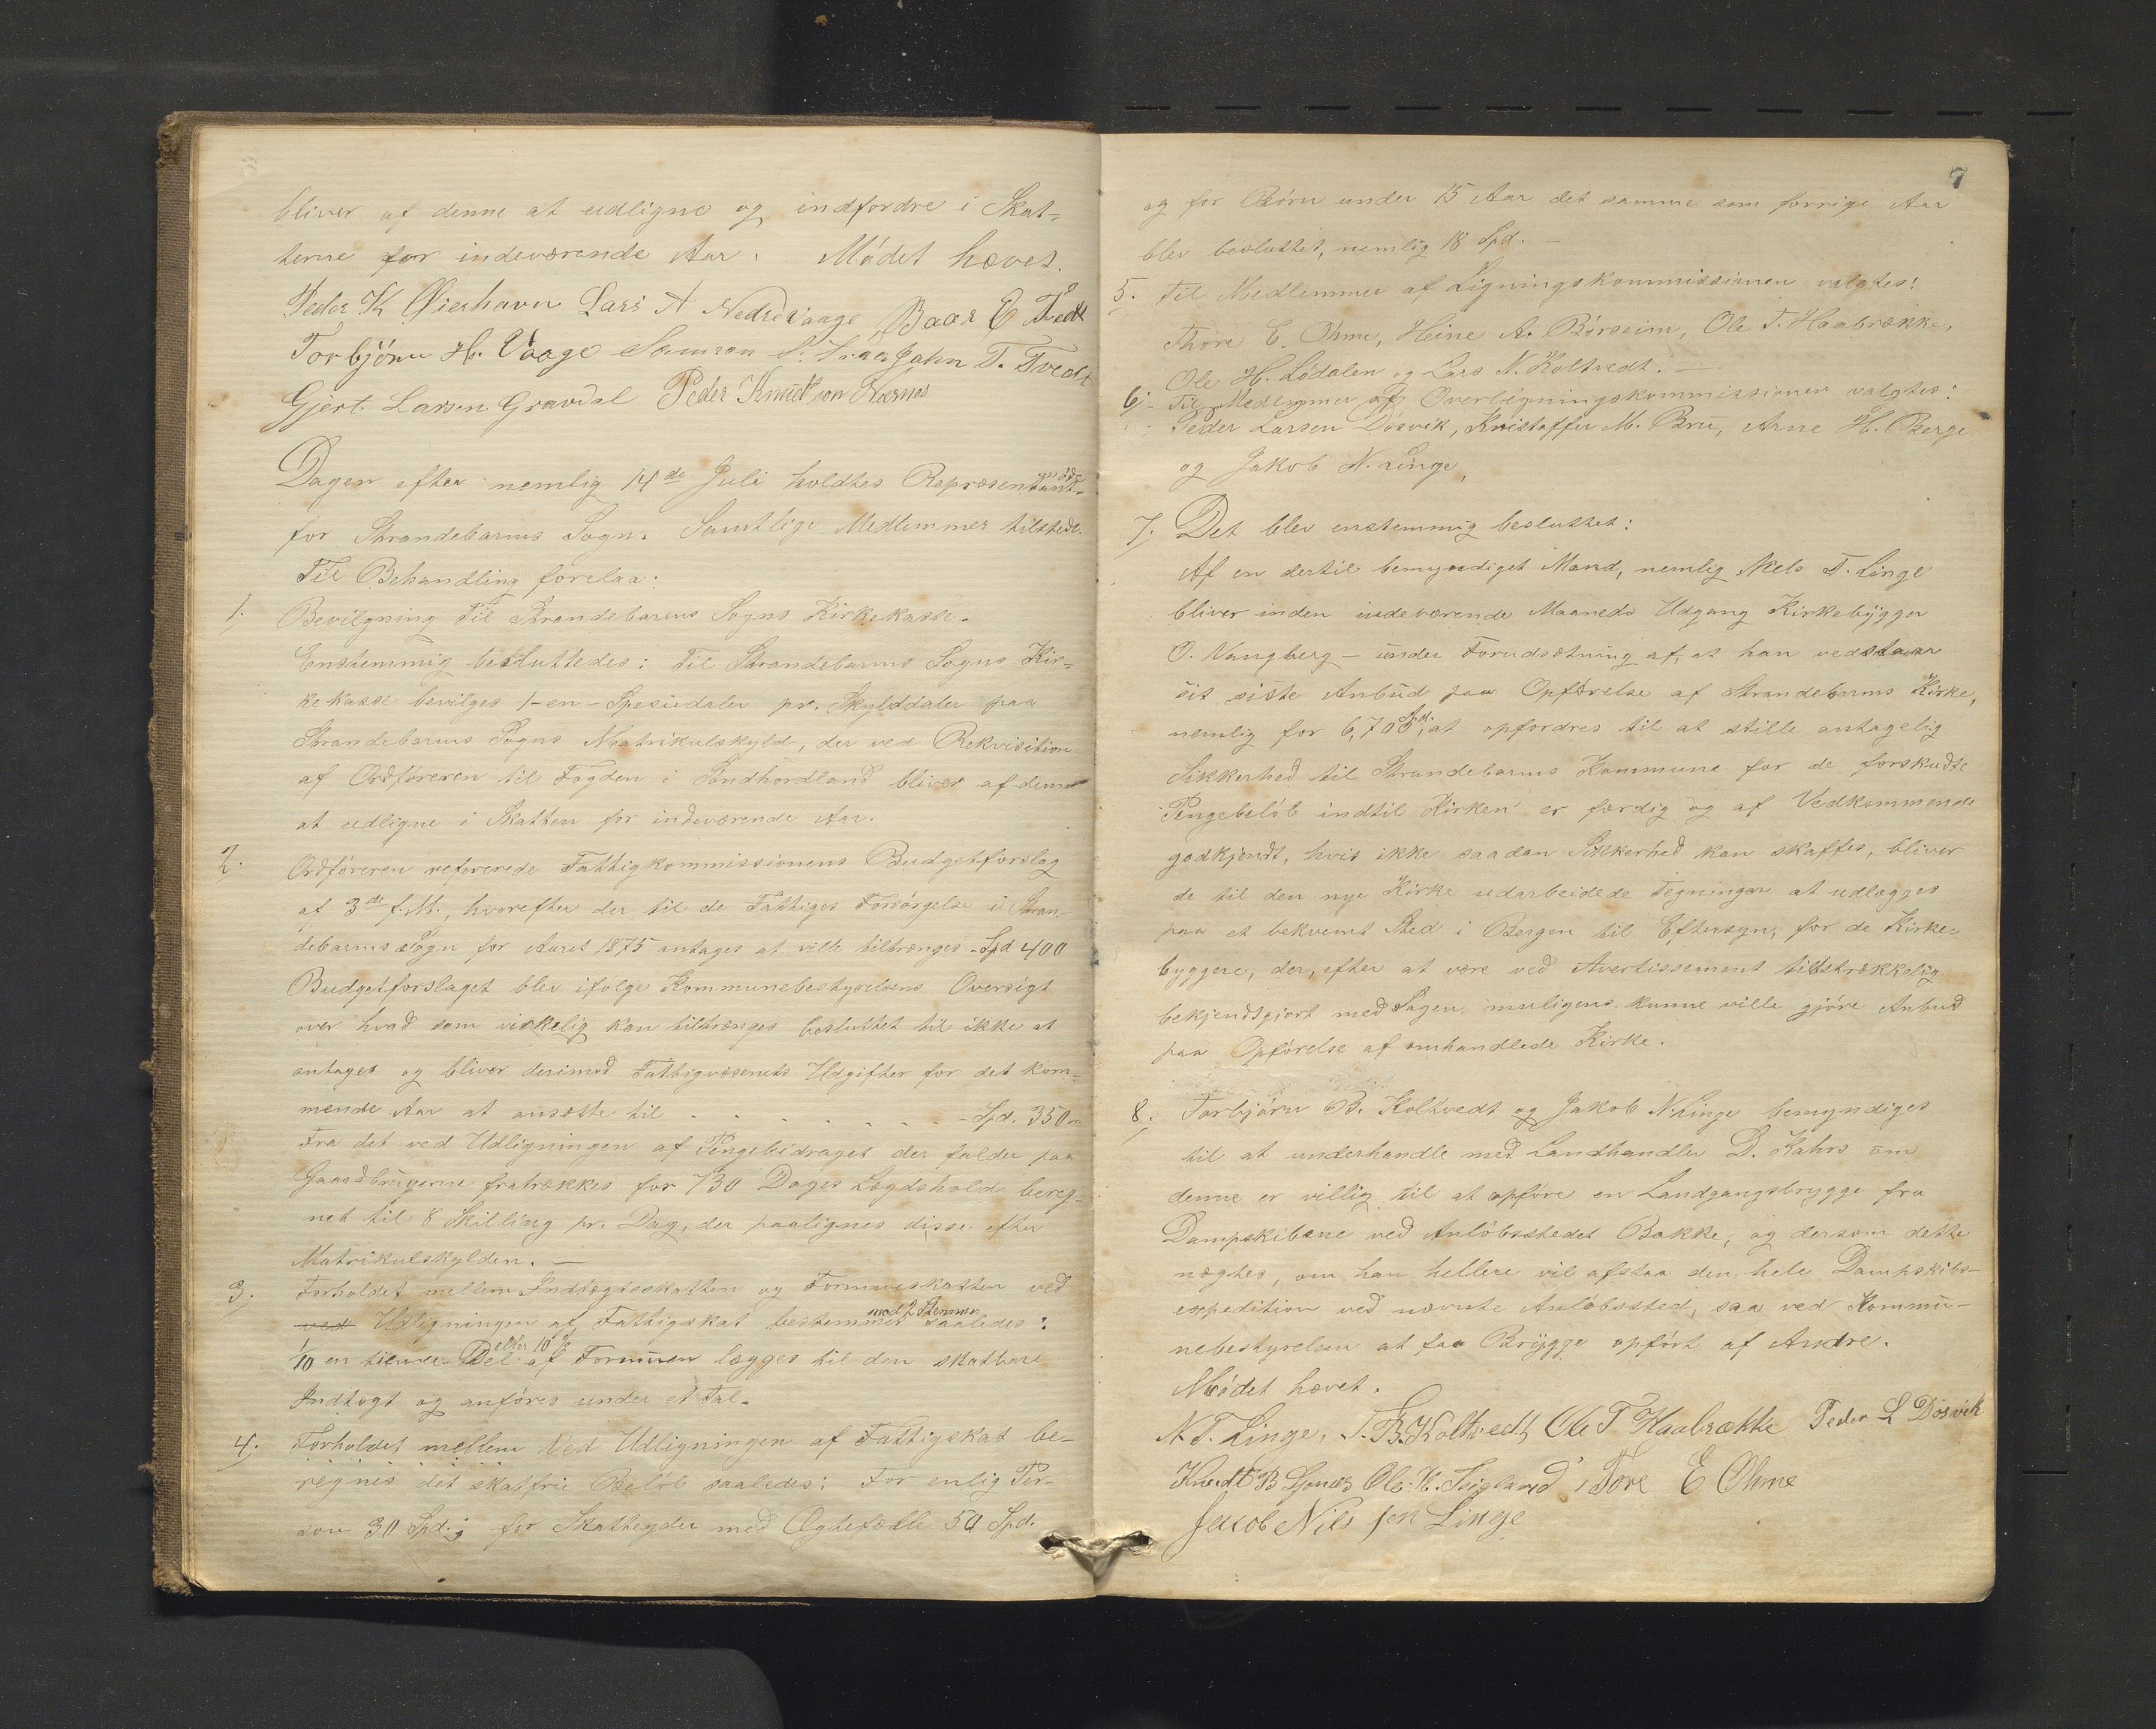 bliver af denne at udligne og indfordre i Skat-
terne for indeværende Aar. Mödet hævet.
Peder K Øierhavn Lars A Nedrevaage Baar E Tvedt
Torbjörn H. Vaage Samson John T. Tvedt
Gjert Larsen Gravdal Peder Knudtson Nærnes
Dagen efter nemlig 14de Juli holdtes Repræsentantmöde
for Strandebarms Sogn. Samtlige Medlemmer tilstede.
Til Behandling forelaa:
1. Bevilgning til Strandebarms Sogns Kirkekasse.
Enstemmig besluttedes: Til Strandebarms Sogns Kir-
kekasse bevilges 1-en-Speciedaler pr. Skylddaler paa
Strandebarms Sogns Matrikulskyld, der ved Rekvisition
af Ordföreren til Fogden i Söndhordland bliver af denne
at udligne i Skatten for indeværende Aar.
2. Ordföreren refererede Fattigkommissionens Budgetforslag
af 3de f.M., hvorefter der til de Fattiges Forsörgelse i Stran-
debarms Sogn for Aaret 1875 antages at ville tiltrænges - Spd 400
Budgetforslaget blev ifölge Kommunebestyrelsens Oversigt
over hvad som virkelig kan tiltrænges besluttet til ikke at
antages og bliver derimod Fattigvæsenets Udgifter for det kom-
mende Aar at ansætte til - - - - - - Spd. 350.
Fra det ved Udligningen af Pengebidraget der falder paa
Gaardbrugerne fratrækkes for 730 Dages Lægdshold bereg-
net til 8 Skilling pr. Dag, der paalignes disse efter
Matrikulskylden. —
3. Forholdet mellem Indtægtsskatten og Formueskatten ved
ved Udligningen af Fattigskat bestemmes mod 2 Stemmer saaledes:
1/10 en tiende Del eller 10 % af Formuen lægges til den skatbare
Indtægt og anföres under et Tal.
4. Forholdet mellem Ved Udligningen af Fattigskat be-
regnes det skatfrie Belöb saaledes: For enlig Per-
son 30 Spd.; for Skatteyder med Ægtefælle 50 Spd.
7
og for Börn under 15 Aar det samme som forrige Aar
blev besluttet, nemlig 18 Spd. —
5. Til Medlemmer af Ligningskommissionen valgtes:
Thore E. Ohme, Heine A. Börseim, Ole T. Haabrække,
Ole H. Lödalen og Lars N. Koltvedt. —
6. Til Medlemmer af Overligningskommissionen valgtes:
Peder Larsen Dösvik, Kristoffer M. Bru, Arne H. Berge
og Jakob N. Linge.
7. Det blev enstemmig besluttet:
Af en dertil bemyndiget Mand, nemlig Nels T. Linge
bliver inden indeværende Maaneds Udgang Kirkebygger
O. Vangberg - under Forudsætning af, at han vedstaar
sit siste Anbud paa Opförelse af Strandebarms Kirke,
nemlig for 6,700 Spd. at opfordres til at stille antagelig
Sikkerhed til Strandebarms Kommune for de forskudte
Pengebelöb indtil Kirken er færdig og af Vedkommende
godkjendt, hvis ikke saadan Sikkerhed kan skaffes, bliver
de til den nye Kirke udarbeidede Tegninger at udlægges
paa et bekvemt Sted i Bergen til Eftersyn, for de Kirke-
byggere, der, efter at være ved Avertissement tilstrækkelig
bekjendtgjort med Sagen, muligens kunne ville gjöre Anbud
paa Opförelse af omhandlede Kirke.
8. Torbjörn B. Koltvedt og Jakob N. Linge bemyndiges
til at underhandle med Landhandler D. Kahrs om
denne er villig til at opföre en Landgangsbrygge fra
Dampskibene ved Anlöbsstedet Bakke, og dersom dette
nægtes, om han hellere vil afstaa den hele Dampskibs-
expedition ved nævnte Anlöbssted, saa ved Kommu-
nebestyrelsen at faa Brygge opfört af Andre.
Mödet hævet.
N. T. Linge, T. B. Koltvedt, Ole T Haabrække Peder L Dösvik
Knudt B Ole H. Tore E Ohme
Jacob Nilssen Linge